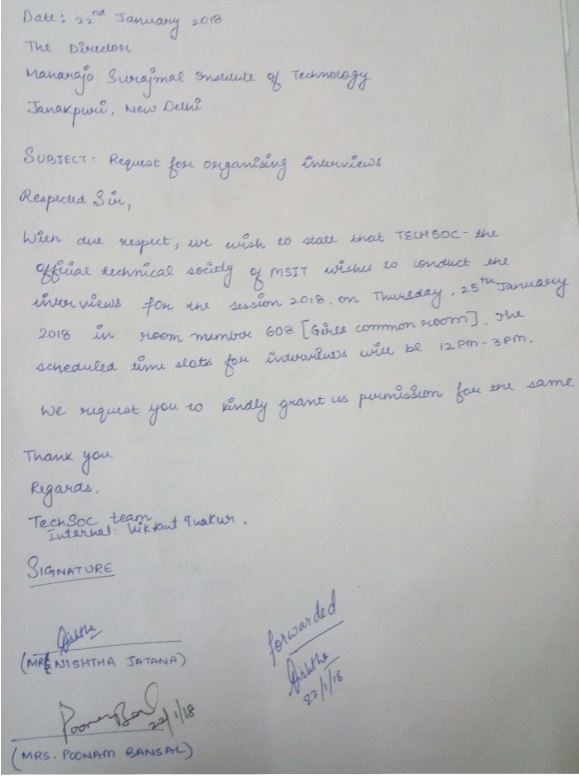 Date: 22nd January 2018
The Director
Maharaja Surajmal Institute of Technology
Janakpuri, New Delhi
SUBJECT- Request for organising interviews
Respected Sir,
With due respect, we wish to state that TECHSOC- the
official technical society of MSIT wishes to conduct the
interviews for the session 2018, on Thursday, 25th January
2018 in room number 608 [Girls common room]. The
scheduled time slots for interviews will be 12PM-3PM.
We request you to kindly grant us permission for the same
Thank you
Regards,
TechSoc team
Internal: Vikrant Thakur.
SIGNATURE
Nishtha
(MRS. NISHTHA JATANA)
forwarded
Nishtha
22/1/18
Poonam Bansal 22/1/18
(MRS. POONAM BANSAL)